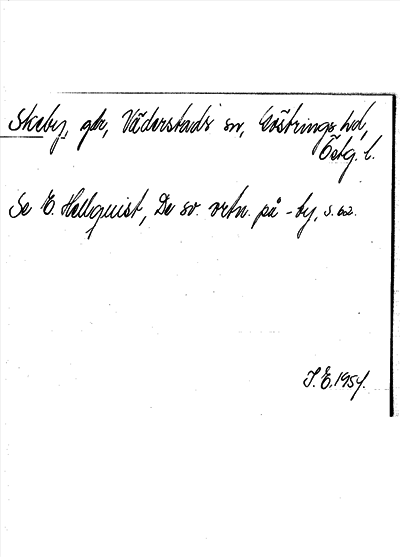 Skeby, gdr, Väderstads sn, Göstrings hd,
Östg. l.
Se E. Hellquist, De sv. ortn. på -by, s. 62.
J. E. 1954.